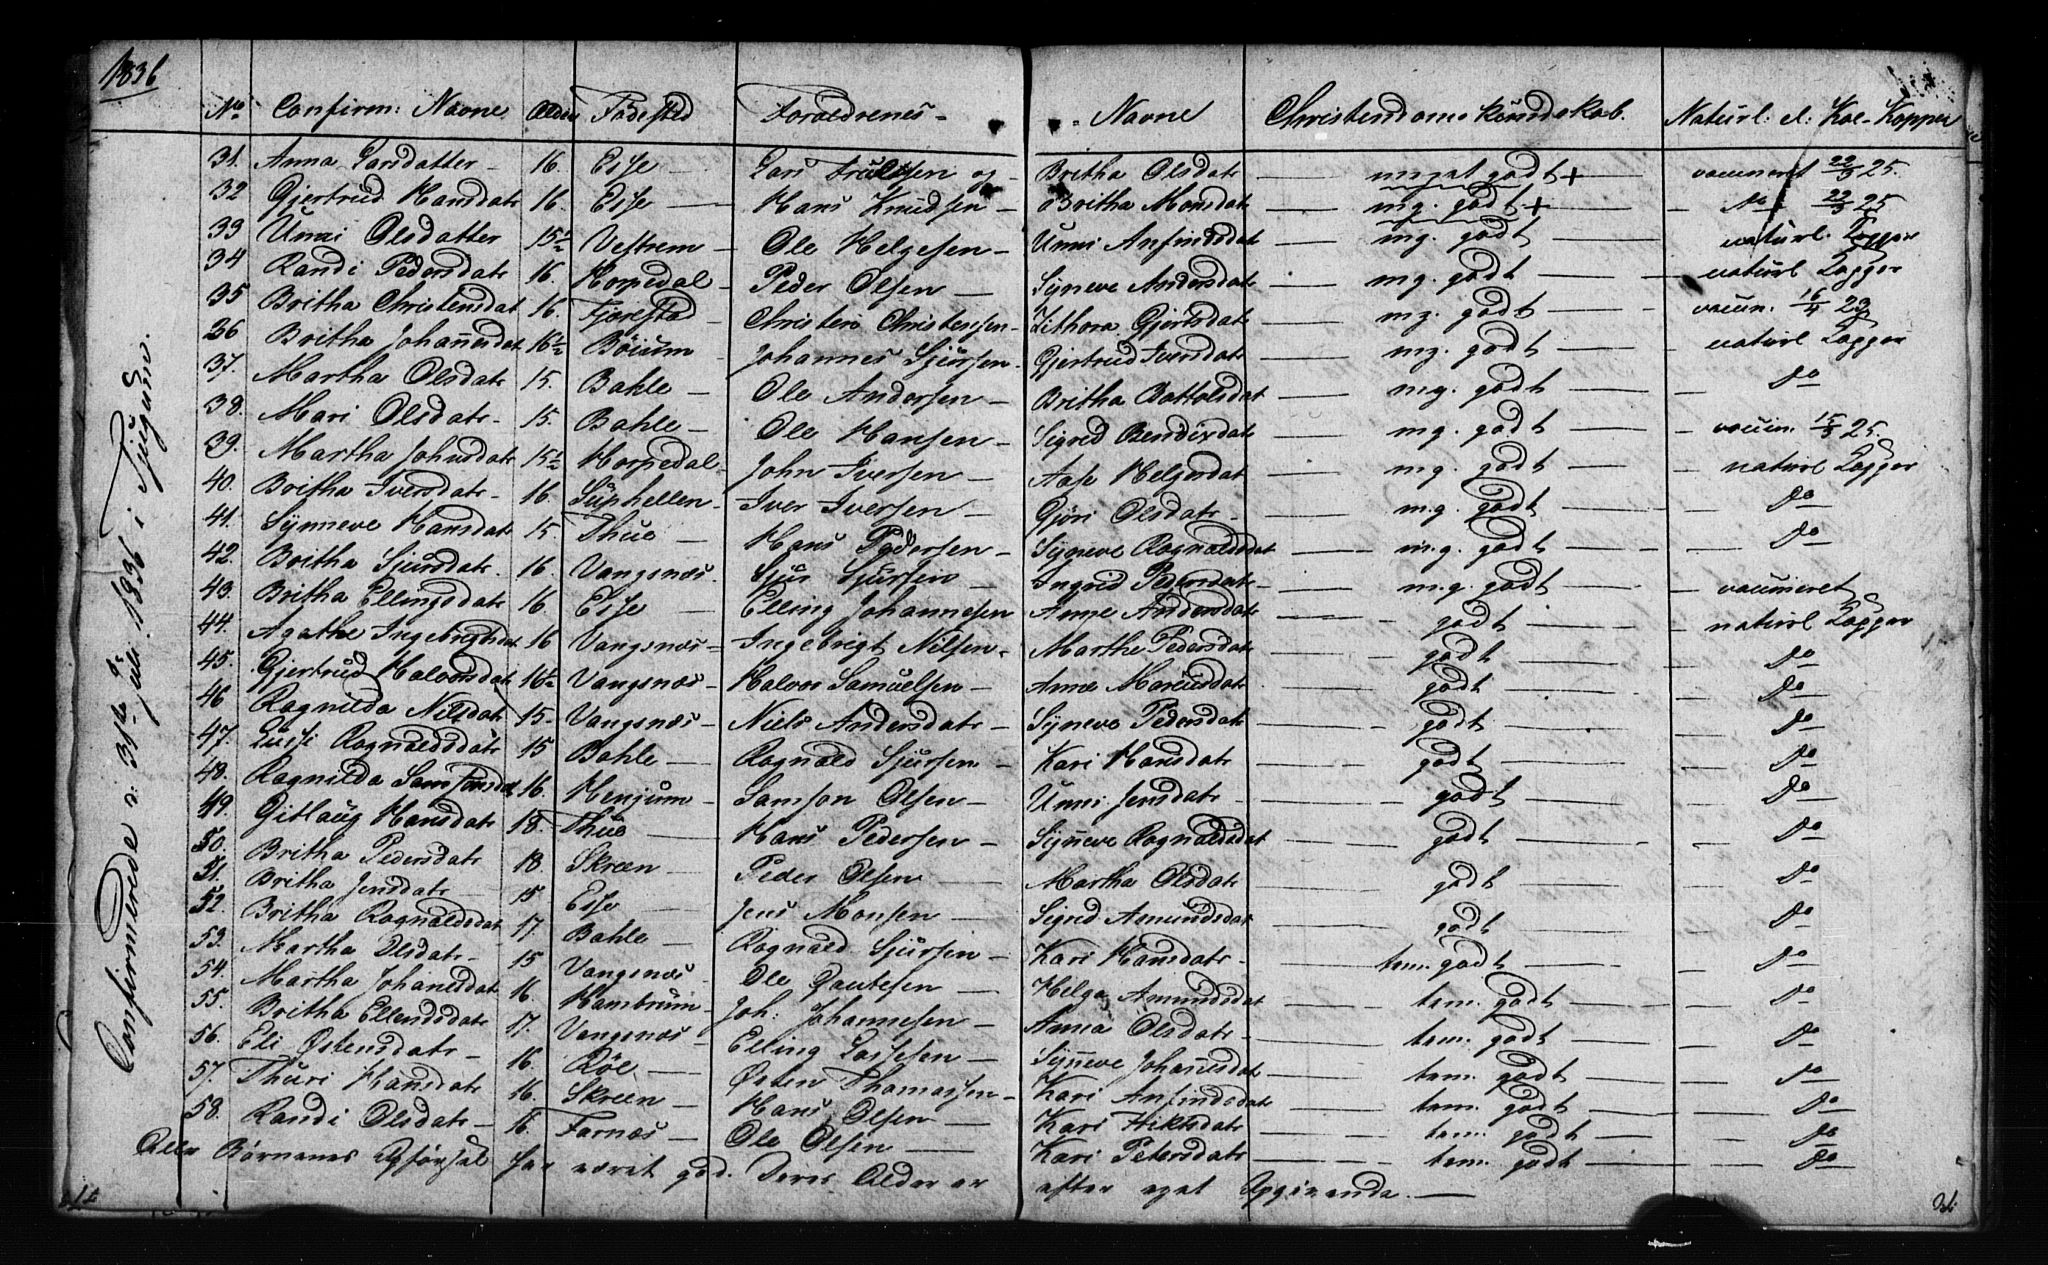 1836
No Confirm: Navne Alder Födested Forældrenes Navne Christendoms kundskab. Naturl: el: Koe-Kopper
Confirmerede d: 31te Juli 1836 i Tjugum.
31. Anna Larsdatter 16. Esse Lars Trulsen og Britha Olsdatr meget godt + vaccineret 22/3 25.
32 Gjertrud Hansdatr 16. Esse Hans Knudsen Britha Monsdatr mg. godt + 22/3 25
33 Unni Olsdatter 15½ Vestrem Ole Helgesen Unni Anfindsdat mg. godt naturl. Kopper
34 Randi Pedersdatr 16. Horpedal Peder Olsen Syneve Andersdatr mg. godt naturl Kopper
35 Britha Christensdat 16. Fjærestad Christen Christensen Lithora Gjertsdatr mg. godt vaccin. 16/4 23
36 Britha Johannesdat 16½ Böium Johannes Sjursen Gjertrud Iversdatr mg. godt naturl Kopper
37. Martha Olsdatr 15. Bahle Ole Andersen Britha Bottolsdat mg. godt Do
38. Mari Olsdatr 15. Bahle Ole Hansen Sigrid Bendixdatr mg. godt vaccin. 15/3 25.
39. Martha Johnsdatr 15½ Horpedal John Iversen Aase Helgesdat mg. godt naturl Kopper
40. Britha Iversdatr 16 Suphellen Iver Iversen Gjöri Olsdatr mg. godt Do
41. Synneve Hansdatr 15 Thue Hans Pedersen Syneve Ragnaldsdat mg. godt Do
42. Britha Sjursdatr 16. Vangsnæs Sjur Sjursen Ingrid Pedersdatr mg. godt vaccineret
43. Britha Ellingsdatr 16 Esse Elling Johannesen Anne Andersdatr godt naturl Kopper
44. Agathe Ingebrigtsdat 16 Vangsnæs Ingebrigt Nilsen Marthe Pedersdatr godt Do
45. Gjertrud Halvorsdat 16½ Vangsnæs Halvor Samuelsen Anne Marcusdat godt Do
46 Ragnilda Nilsdatr 15 Vangsnæs Niels Andersdatr Syneve Pedersdatr godt Do
47. Lussi Ragnaldsdatr 15 Bahle Ragnald Sjursen Kari Hansdatr godt Do
48. Ragnilda Samsonsdat 16. Henjum Samson Olsen Unni Jensdatr godt Do
49. Gitlaug Hansdatr 18. Thue Hans Pedersen Synneve Ragnaldsdat godt Do
50. Britha Pedersdatr 18 Skreen Peder Olsen Martha Olsdatr godt Do
51. Britha Jensdatr 15 Esse Jens Monsen Sigrid Amundsdat godt Do
52. Britha Ragnaldsdat 17. Bahle Ragnald Sjursen Kari Hansdatr tem. godt Do
53. Martha Olsdatr 15 Vangsnæs Ole Gautesen Helga Amundsdat tem. godt Do
54. Martha Johanesdat 16. Hambrum Joh: Johannesen Anna Olsdatr tem. godt Do
55. Britha Ellendsdatr 17. Vangsnæs Elling Lassesen Synneve Johanesdat tem. godt Do
56. Eli Östensdatr 16. Röe Östen Thomassen Kari Anfindsdatr tem. godt Do
57. Thuri Hansdatr 16. Skreen Hans Olsen Kari tem. godt Do
58. Randi Olsdatr 16 Farnæs Ole Olsen Kari Petersdatr tem. godt Do
Alle Börnenes Opförsel har været god. Deres Alder er efter eget Opgivende.